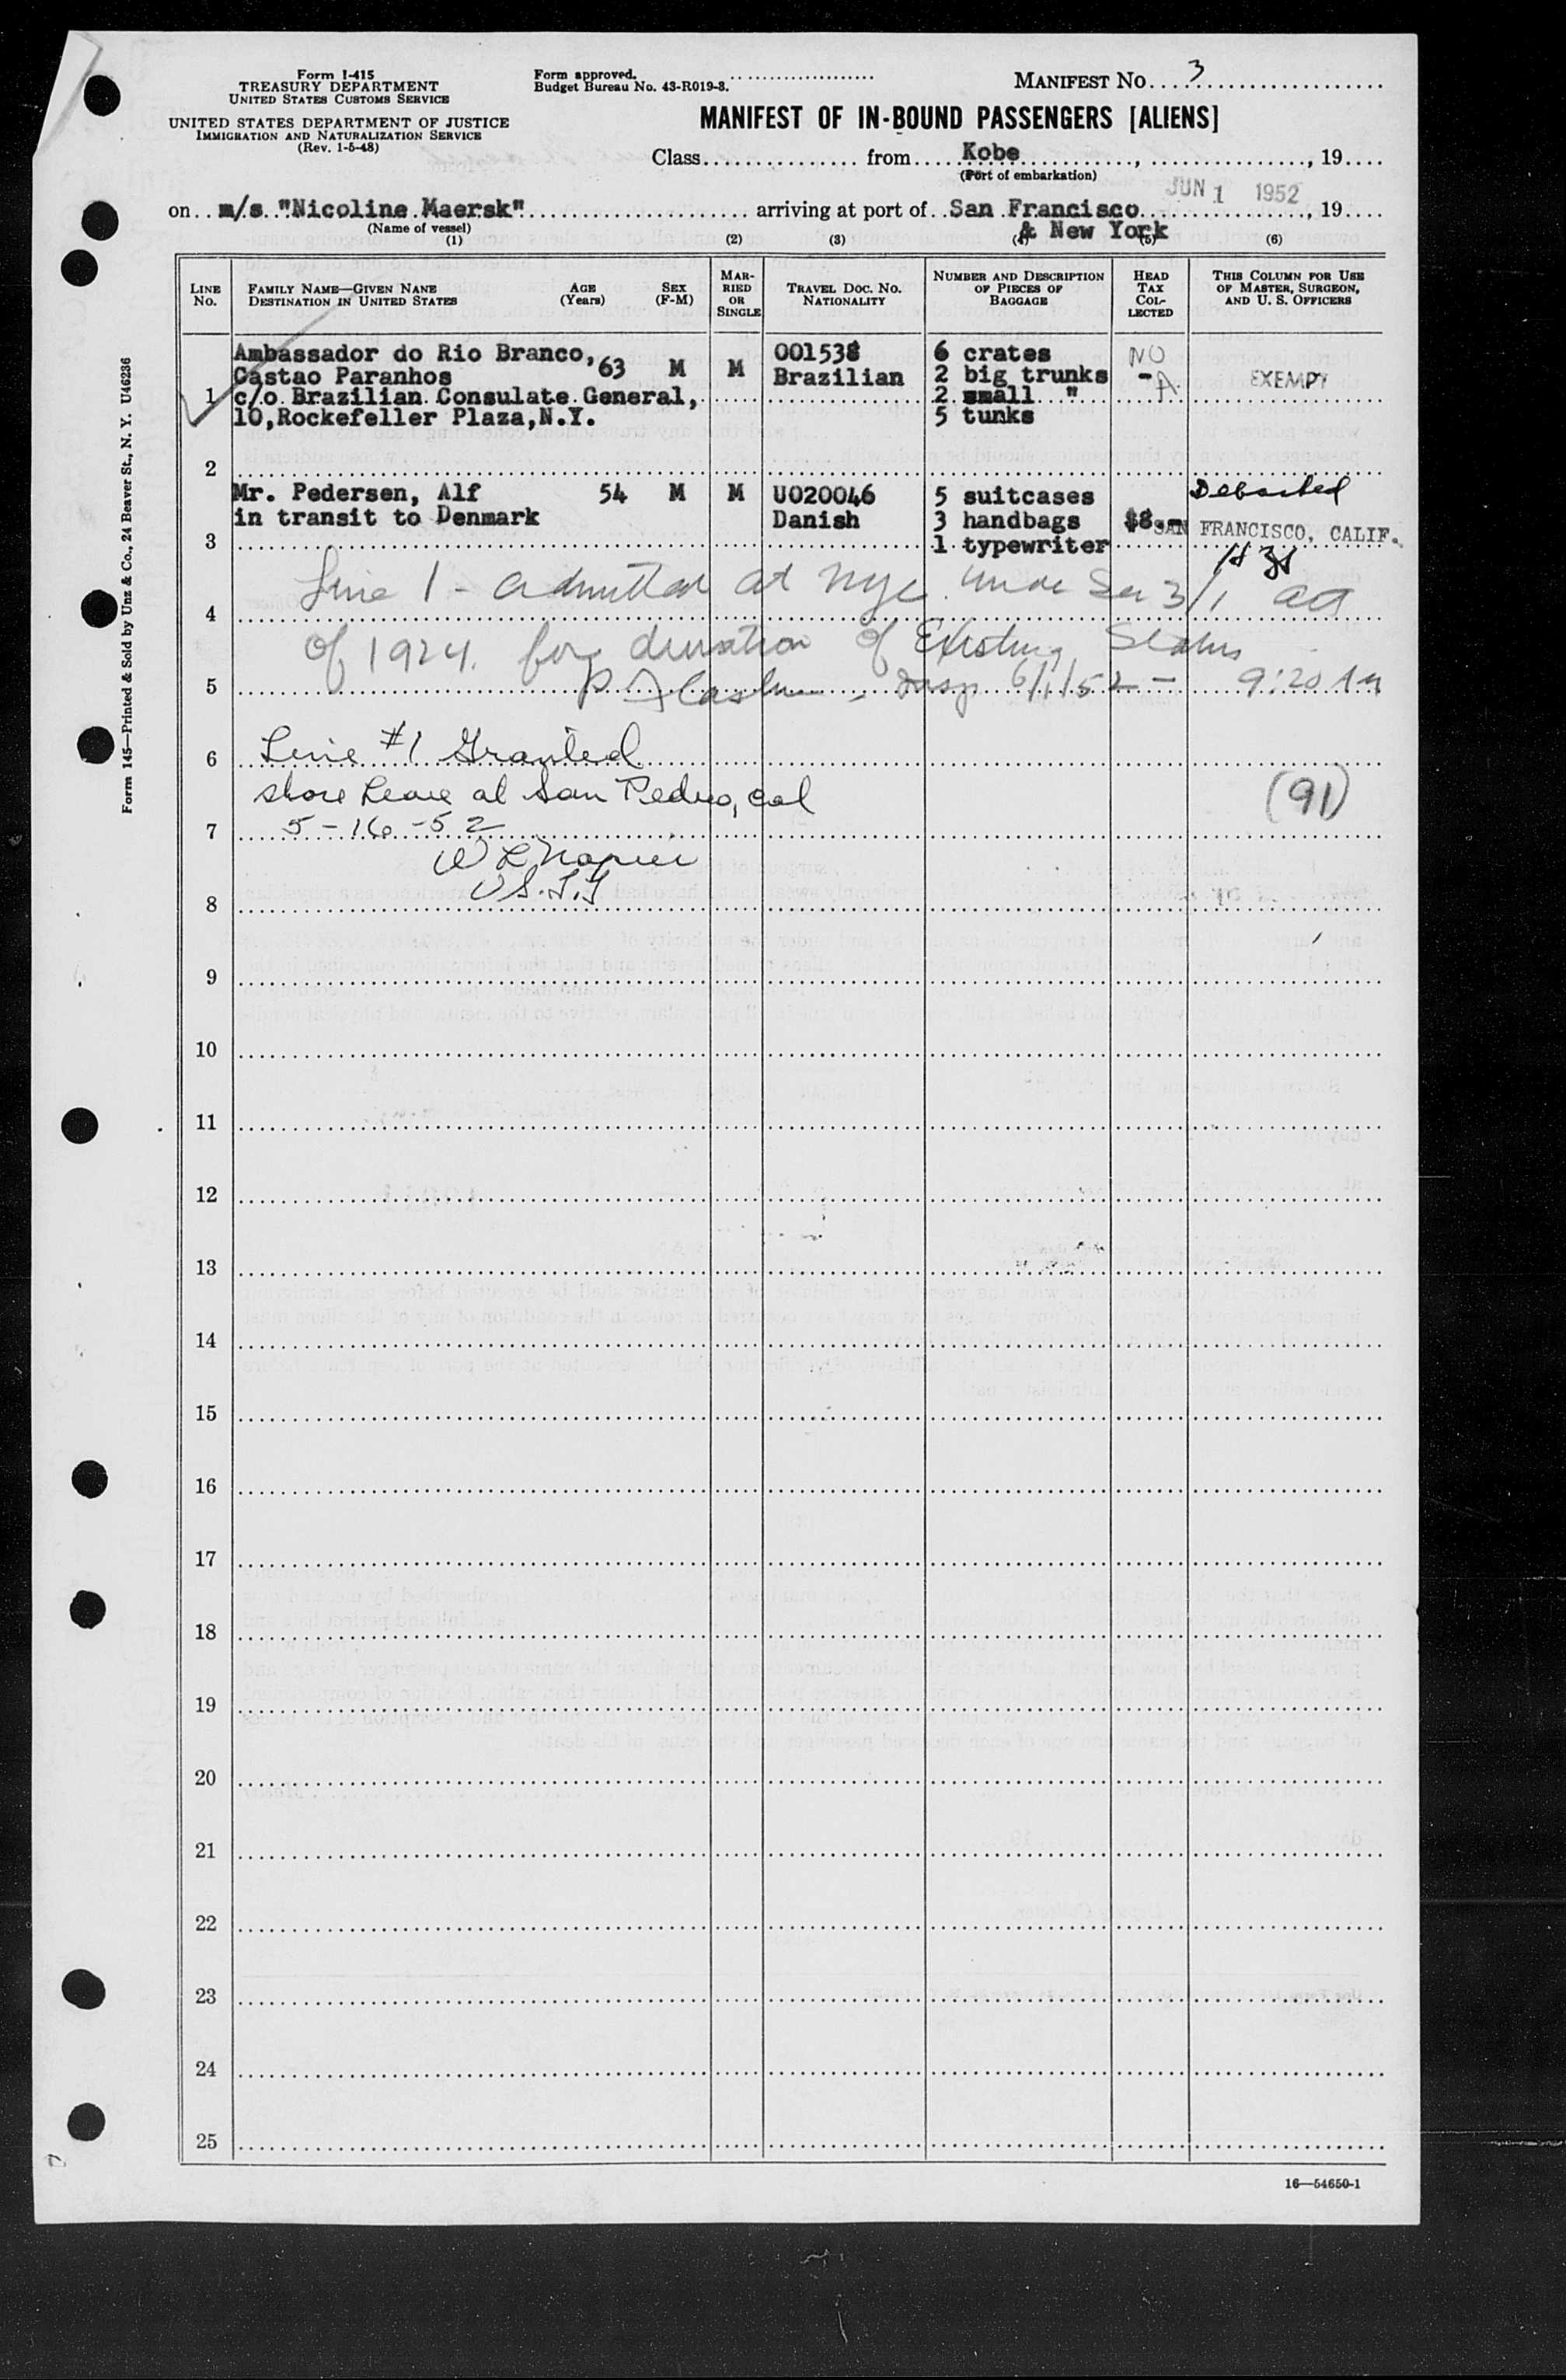 Form I-415
TREASURY DEPARTMENT
UNITED STATES CUSTOMS SERVICE
UNITED STATES DEPARTMENT OF JUSTICE
IMMIGRATION AND NATURALIZATION SERVICE
(Rev. 1-5-48)
Form approved.
Budget Bureau No. 43-R019-3.
MANIFEST NO. 3
MANIFEST OF IN-BOUND PASSENGERS [ALIENS]
Class from Kobe , , 19
(Port of embarkation)
JUN 1 1952
on m/s "Nicoline Maersk" arriving at port of San Francisco , 19
& New York
(Name of vessel)
(1) (2) (3) (4) (5) (6)
LINE No.
FAMILY NAME—GIVEN NANE
DESTINATION IN UNITED STATES
AGE (Years)
SEX (F-M)
MARRIED OR SINGLE
TRAVEL DOC. NO. NATIONALITY
NUMBER AND DESCRIPTION OF PIECES OF BAGGAGE
HEAD TAX COLLECTED
THIS COLUMN FOR USE OF MASTER, SURGEON, AND U. S. OFFICERS
Ambassador do Rio Branco, 63 M M 001538 6 crates NO
Castao Paranhos Brazilian 2 big trunks -A. EXEMPT
1 c/o Brazilian Consulate General, 2 small "
10,Rockefeller Plaza,N.Y. 5 tunks
2
Mr. Pedersen, Alf 54 M M U020046 5 suitcases Debarked
in transit to Denmark Danish 3 handbags $8.- SAN FRANCISCO, CALIF.
3 1 typewriter
Line 1 - admitted at NYC. under Sec 3/1 act
4
of 1924. for duration of Existing Status
5 Insp 6/1/52 - 9:20 AM
6 Line #1 Granted
shore leave at San Pedro, Cal (91)
7 5-16-52
W L Napier
U S. I. I
8
9
10
11
12
13
14
15
16
17
18
19
20
21
22
23
24
25
16—54650-1
Form 145—Printed & Sold by Unz & Co., 24 Beaver St., N. Y. U46236